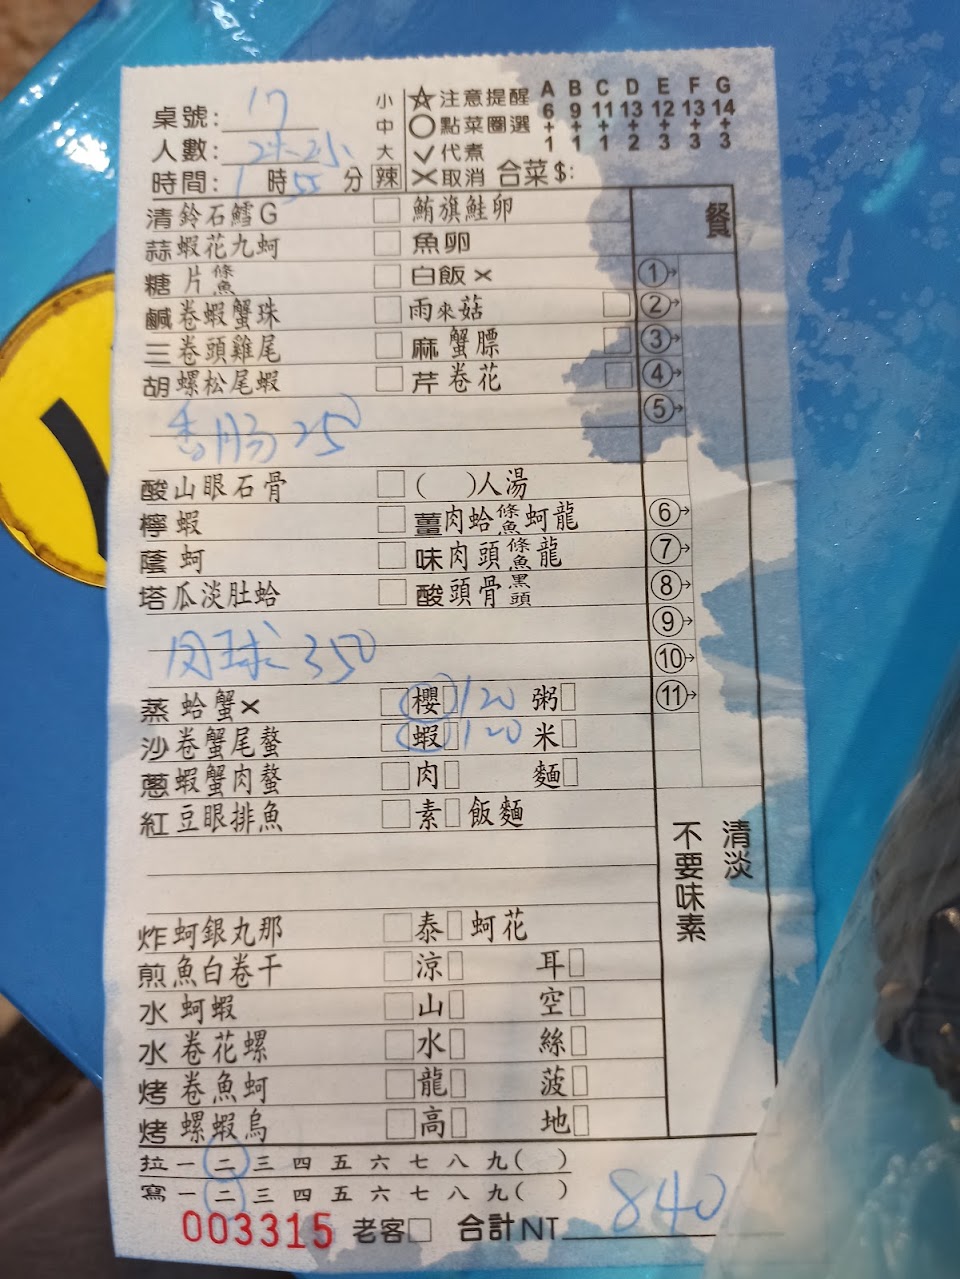 桌號: 17
人數: 2大2小
時間: 1 時 55 分
小
中
大
辣
☆注意提醒
○點菜圈選
✓代煮
✕取消 合菜$:
A B C D E F G
6 9 11 13 12 13 14
+ + + + + + +
1 1 1 2 3 3 3
餐
清 鈴石鱈G □ 鮪旗鮭卵
蒜 蝦花九蚵 □ 魚卵
糖 片條魚 □ 白飯× ①→
鹹 卷蝦蟹珠 □ 雨來菇 □ ②→
三 卷頭雞尾 □ 麻 蟹膘 □ ③→
胡 螺松尾蝦 □ 芹 卷花 □ ④→
⑤→
香腸 250
酸 山眼石骨 □ ( )人湯
檸 蝦 □ 薑 肉蛤條魚蚵龍 ⑥→
蔭 蚵 □ 味 肉頭條魚龍 ⑦→
塔 瓜淡肚蛤 □ 酸 頭骨黑頭 ⑧→
⑨→
球 350 ⑩→
蒸 蛤蟹× □ 櫻□ 120 粥□ ⑪→
沙 卷蟹尾螯 □ 蝦□ 120 米□
蔥 蝦蟹肉螯 □ 肉□ 麵□
紅 豆眼排魚 □ 素□ 飯麵
清淡
不要味素
炸 蚵銀丸那 □ 泰□ 蚵花
煎 魚白卷干 □ 涼□ 耳□
水 蚵蝦 □ 山□ 空□
水 卷花螺 □ 水□ 絲□
烤 卷魚蚵 □ 龍□ 菠□
烤 螺蝦烏 □ 高□ 地□
拉 一 二 三 四 五 六 七 八 九( )
寫 一 二 三 四 五 六 七 八 九( )
003315 老客□ 合計NT 840